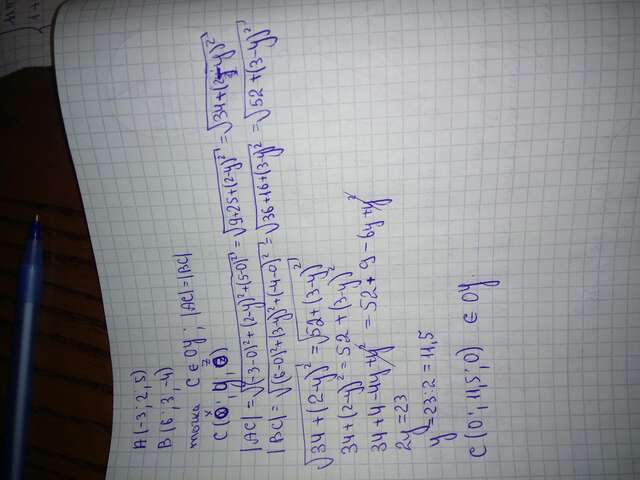 A(-3; 2; 5)
B(6; 3; -4)
точка C ∈ Oy; |AC|=|BC|
C(0; y; 0)
|AC| = √(-3-0)²+(2-y)²+(5-0)² = √9+25+(2-y)² = √34+(2-y)²
|BC| = √(6-0)²+(3-y)²+(-4-0)² = √36+16+(3-y)² = √52+(3-y)²
√34+(2-y)² = √52+(3-y)²
34+(2-y)² = 52+(3-y)²
34+4-4y+y² = 52+9-6y+y²
2y=23
y=23:2=11,5
C(0; 11,5; 0) ∈ Oy.